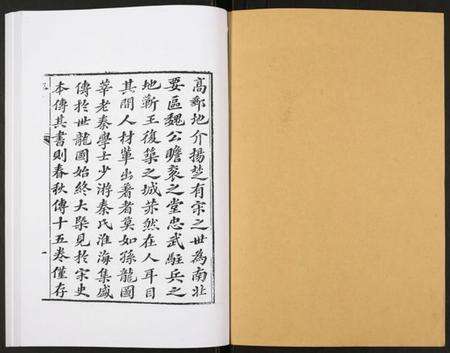 高郵地介揚楚有宋之世為南北
要區魏公瞻衮之堂忠武駐兵之
地蘄王復築之城莽然在人耳目
其間人材軰出著者莫如孫龍圖
莘老秦學士少游秦氏淮海集盛
傳於世龍圖始終大槩見於宋史
本傳其書則春秋傳十五卷僅存